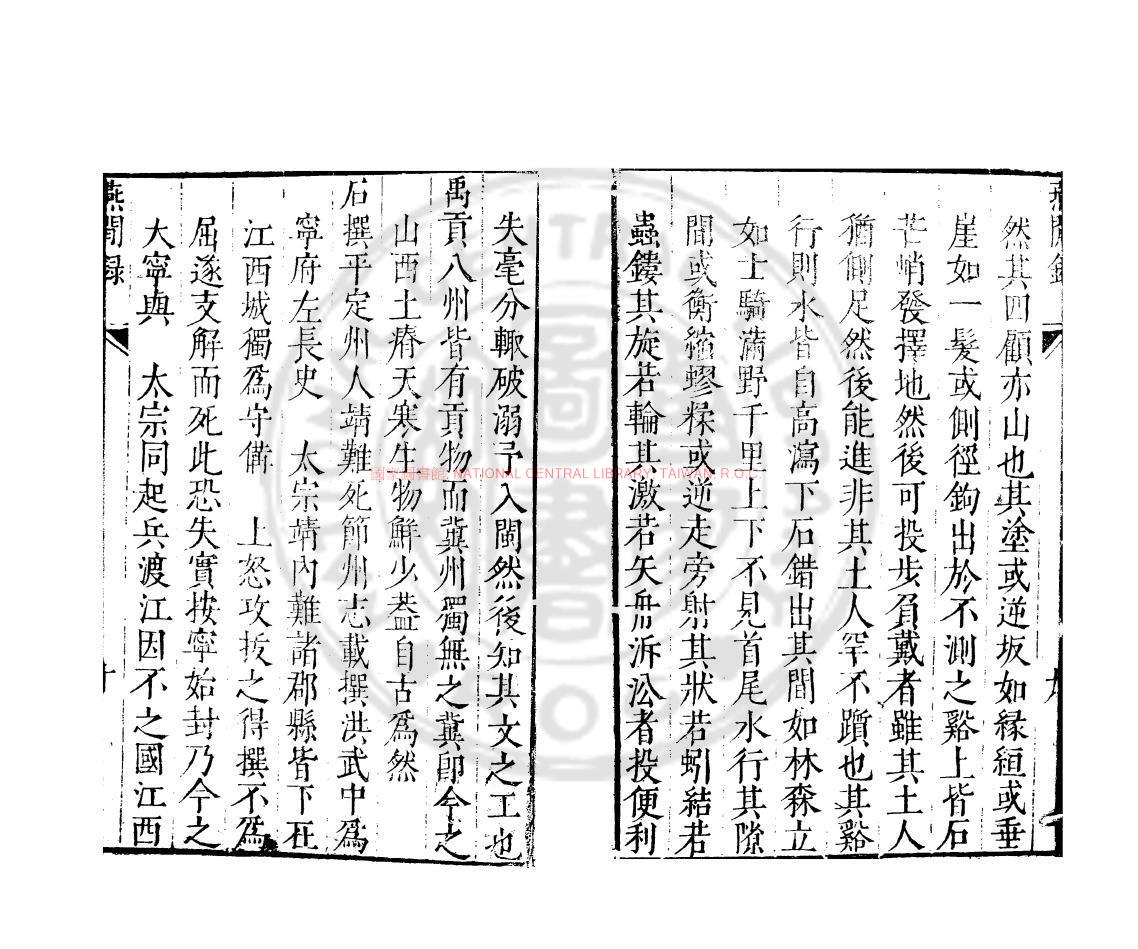 燕閒錄
然其四顧亦山也其塗或逆坂如緣絙或垂
崖如一髮或側徑鉤出於不測之谿上皆石
芒峭發擇地然後可投步負戴者雖其土人
猶側足然後能進非其土人罕不躓也其谿
行則水皆自高瀉下石錯出其間如林森立
如士騎滿野千里上下不見首尾水行其隙
間或衡縮蟉糅或逆走旁射其狀若蚓結若
蟲鏤其旋若輪其激若矢舟泝沿者投便利
失毫分輒破溺予入閩然後知其文之工也
禹貢八州皆有貢物而冀州獨無之冀即今之
山西土瘠天寒生物鮮少葢自古爲然
石撰平定州人靖難死節州志載撰洪武中爲
寧府左長史 太宗靖內難諸郡縣皆下在
江西城獨爲守備 上怒攻拔之得撰不爲
屈遂支解而死此恐失實按寧始封乃今之
大寧與 太宗同起兵渡江因不之國江西
燕閒録
十
國家圖書館 NATIONAL CENTRAL LIBRARY, TAIWAN, R.O.C.